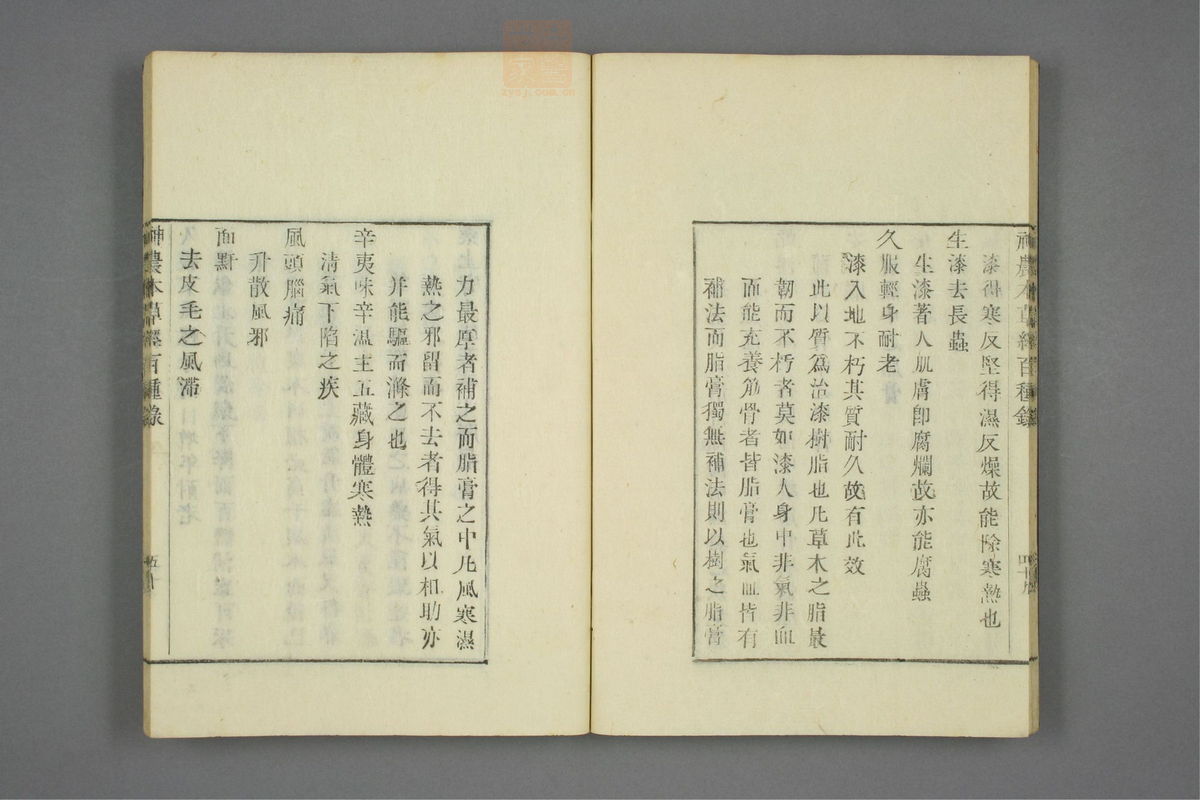 神農本草經百種錄
漆得寒反堅得濕反燥故能除寒熱也
生漆去長蟲
生漆著人肌膚卽腐爛故亦能腐蟲
久服輕身耐老
漆入地不朽其質耐久故有此效
此以質為治漆樹脂也凡草木之脂最
韌而不朽者莫如漆人身中非氣非血
而能充養筋骨者皆脂膏也氣血皆有
補法而脂膏獨無補法則以樹之脂膏
力最厚者補之而脂膏之中凡風寒濕
熱之邪留而不去者得其氣以和助亦
并能驅而滌之也
辛夷味辛溫主五藏身體寒熱
清氣下陷之疾
風頭腦痛
升散風邪
面䵟
去皮毛之風滯
神農本草經百種錄
zysj.com.cn